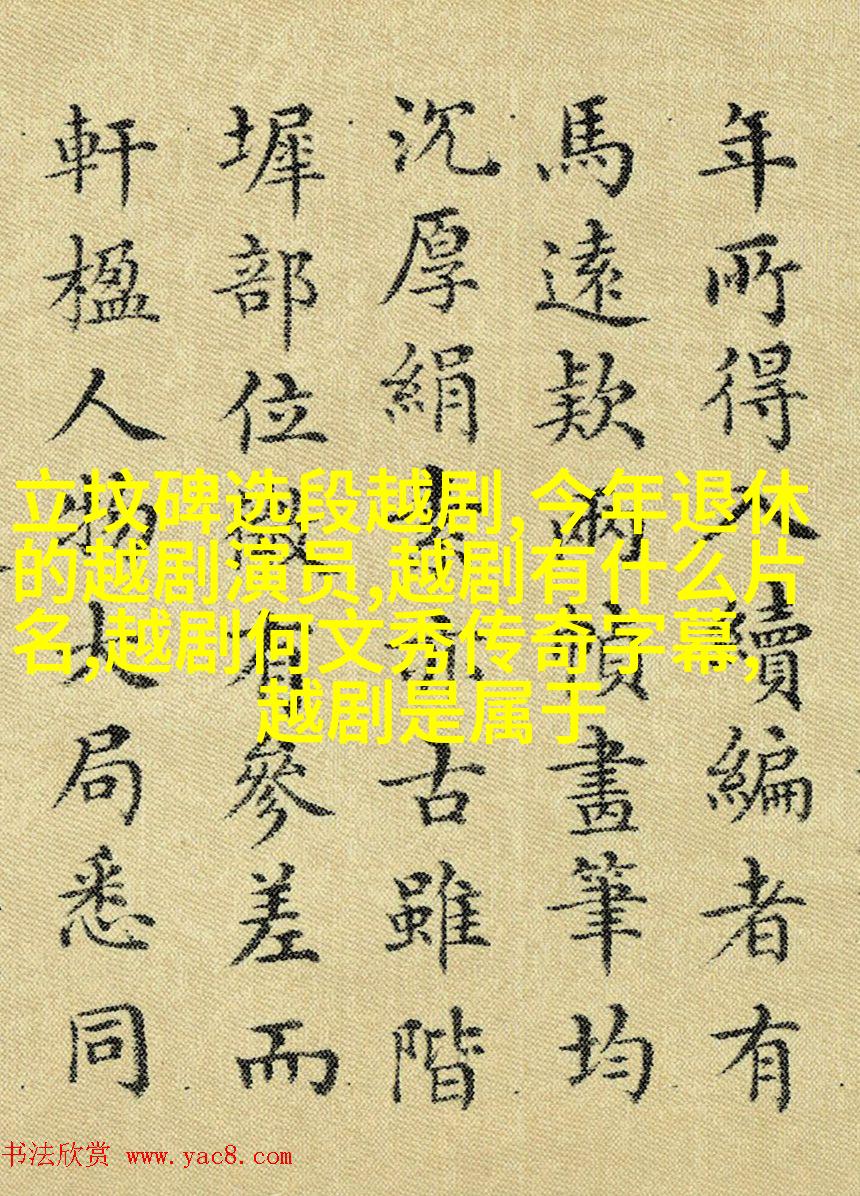 年所得入續編者有
馬遠款兩畫筆均
沉厚絹素亦古雖階
墀部位微有參差而
軒楹人物大局悉同
立坟碑选段越剧,今年退休
的越剧演员,越剧有什么片
名,越剧何文秀传奇字幕,
越剧是属于
书法欣赏 www.yac8.com